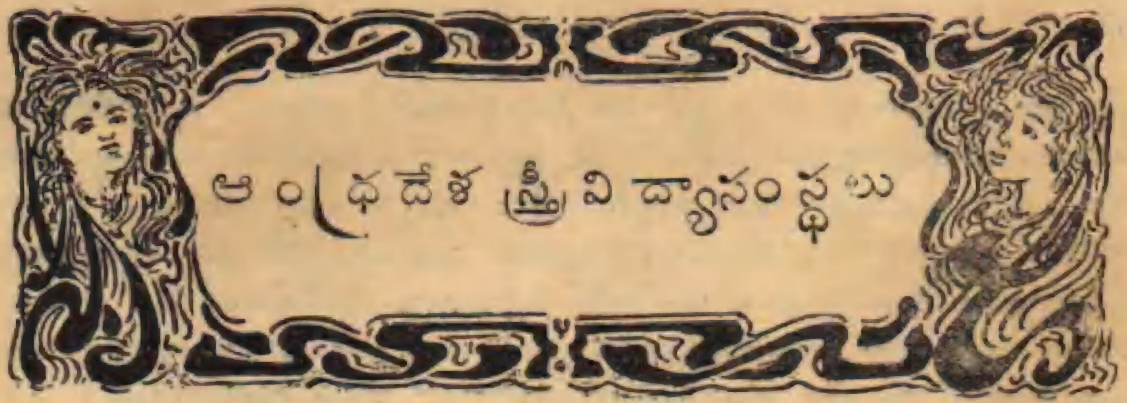 ఆంధ్రదేశ స్త్రీ విద్యాసంస్థలు